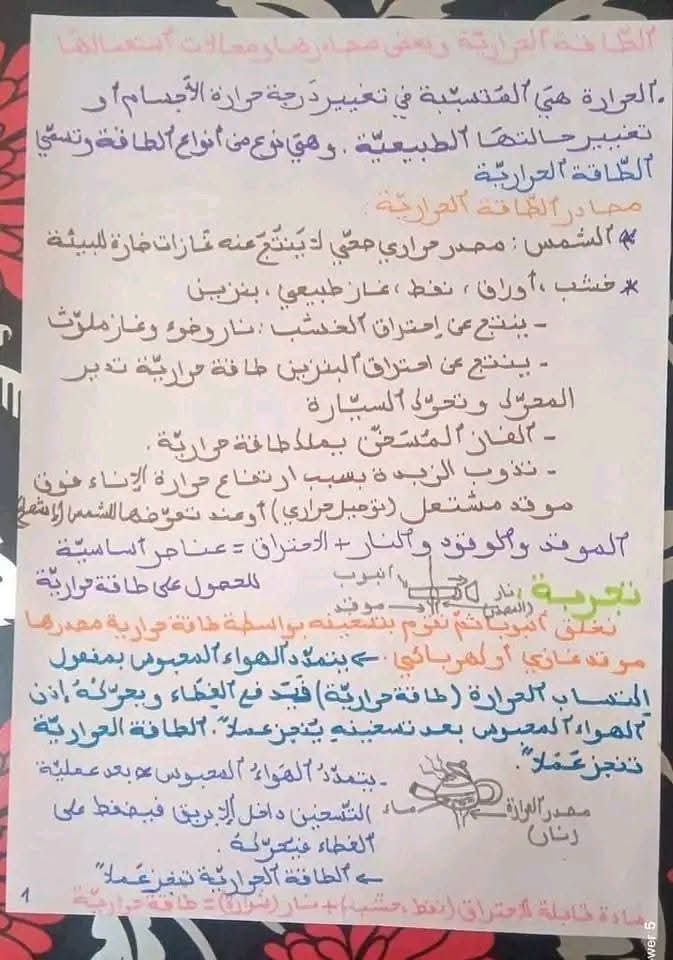 الطّاقة الحراريّة وبعض مصادرها ومجالات استعمالها
.الحرارة هي المتسبّبة في تغيير درجة حرارة الأجسام أو
تغيير حالتها الطبيعيّة . وهي نوع من أنواع الطاقة وتسمّى
الطّاقة الحراريّة
مصادر الطّاقة الحراريّة :
* الشمس : مصدر حراري صحّي لا يَنتُجُ عنه غازات ضارة للبيئة
* خشب ، أوراق ، نفط ، غاز طبيعي ، بنزين
- ينتج عن إحتراق الخشب : نار وضوء وغاز ملوّث
- ينتج عن احتراق البنزين طاقة حراريّة تدير
المحرّك وتحرّك السيّارة
- الغاز المُسَخّن يملك طاقة حراريّة .
- تذوب الزبدة بسبب ارتفاع حرارة الإناء فوق
موقد مشتعل (توصيل حراري) أو عند تعرّضها للشمس
الموقد والوقود والنار + الاحتراق = عناصر أساسيّة
للحصول على طاقة حراريّة
تجربة :
أنبوب
نار
موقد
نغلق أنبوبا ثمّ نقوم بتسخينه بواسطة طاقة حرارية مصدرها
موقد غازي أو كهربائي . ← يتمدّد الهواء المحبوس بمفعول
إكتساب الحرارة (طاقة حراريّة) فيدفع الغطاء ويحرّكهُ إذن
الهواء المحبوس بعد تسخينه يُنجز عملاً". الطاقة الحراريّة
تنجز عَمَلاً".
- يتمدّدُ الهَواءُ المحبوس بعد عمليّة
التّسخين داخل الإبريق فيضغط على
الغطاء فيُحرّكهُ .
← الطاقة الحراريّة تنجز عَملاً"
ماء
مصدر الحرارة
(نار)
مادة قابلة للاحتراق (نفط، خشب) + نار (شرارة) = طاقة حراريّة
1
wer 5